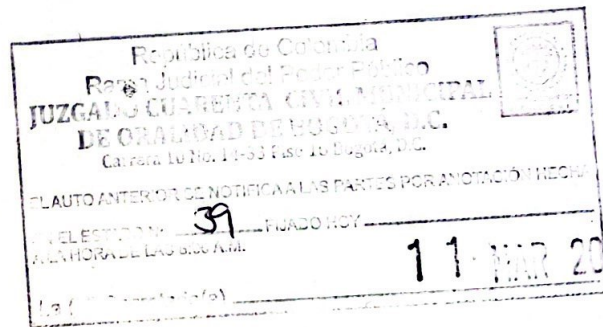 República de Colombia
Rama Judicial del Poder Público
JUZGADO CUARENTA CIVIL MUNICIPAL
DE ORALIDAD DE BOGOTÁ, D.C.
Carrera 10 No. 14-33 Piso 10 Bogotá, D.C.
EL AUTO ANTERIOR SE NOTIFICA A LAS PARTES POR ANOTACIÓN HECHA
EN EL ESTADO N° 39 FIJADO HOY
A LA HORA DE LAS 8:00 A.M.
11 MAR 20